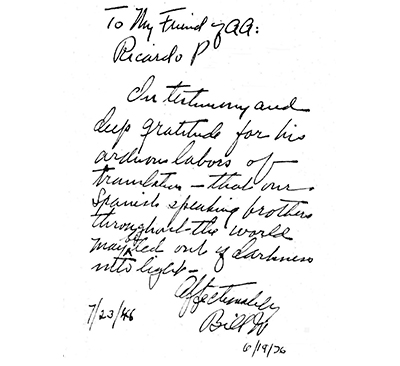 To My Friend of AA:
Ricardo P
In testimony and
deep gratitude for his
arduous labors of
translation – that our
Spanish speaking brothers
throughout the world
may be led out of darkness
into light –
Affectionately
Bill W
7/23/46
6/19/76